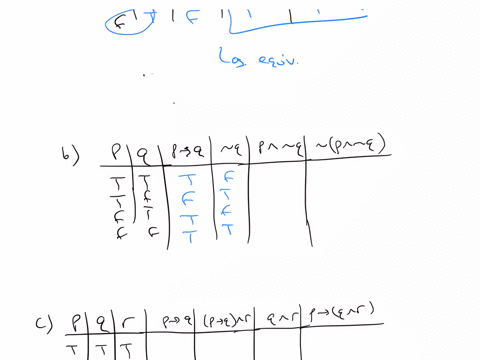 F T F
Log equiv.
b) p q p→q ~q p∧~q ~(p∧~q)
T T T F
T F F T
F T T F
F F T T
c) p q r p→q (p→q)∧r q∧r p→(q∧r)
T T T